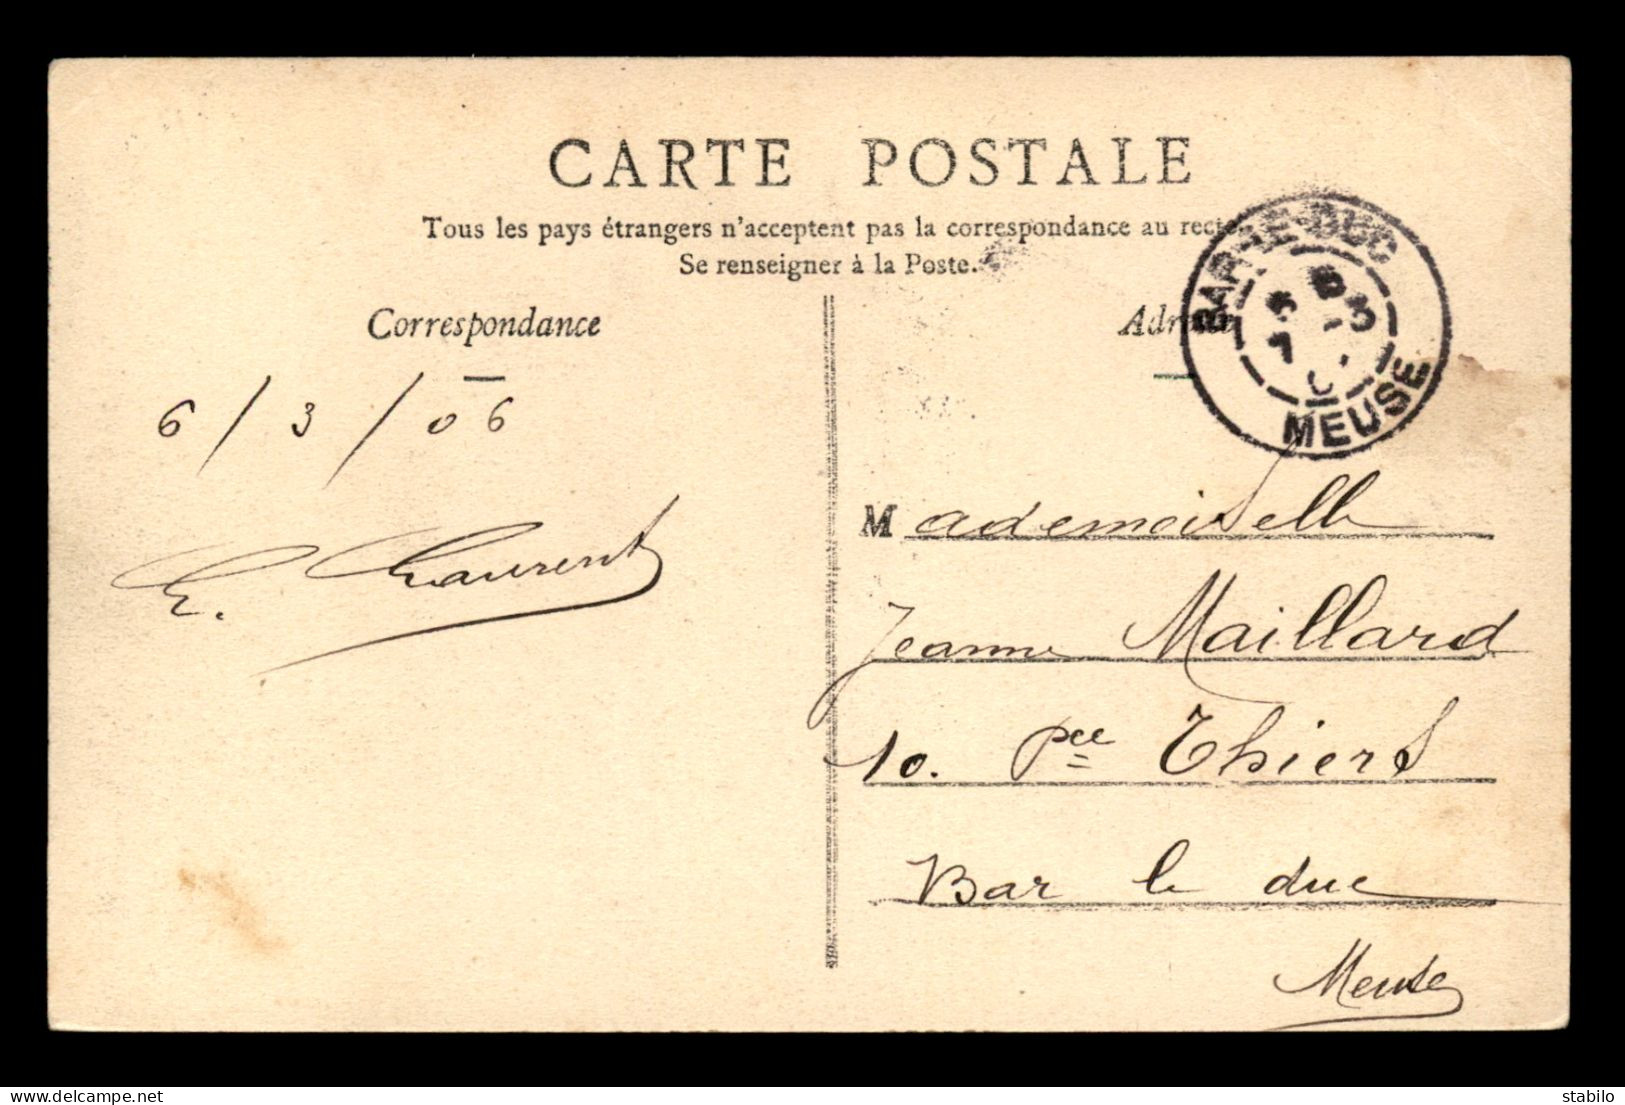 CARTE POSTALE
Tous les pays étrangers n'acceptent pas la correspondance au recto
Se renseigner à la Poste.
Correspondance
Adresse
6/3/06
E. Laurent
BAR-LE-DUC
MEUSE
Mademoiselle
Jeanne Maillard
10. Pce Thiers
Bar le duc
Meuse
www.delcampe.net
stabilo